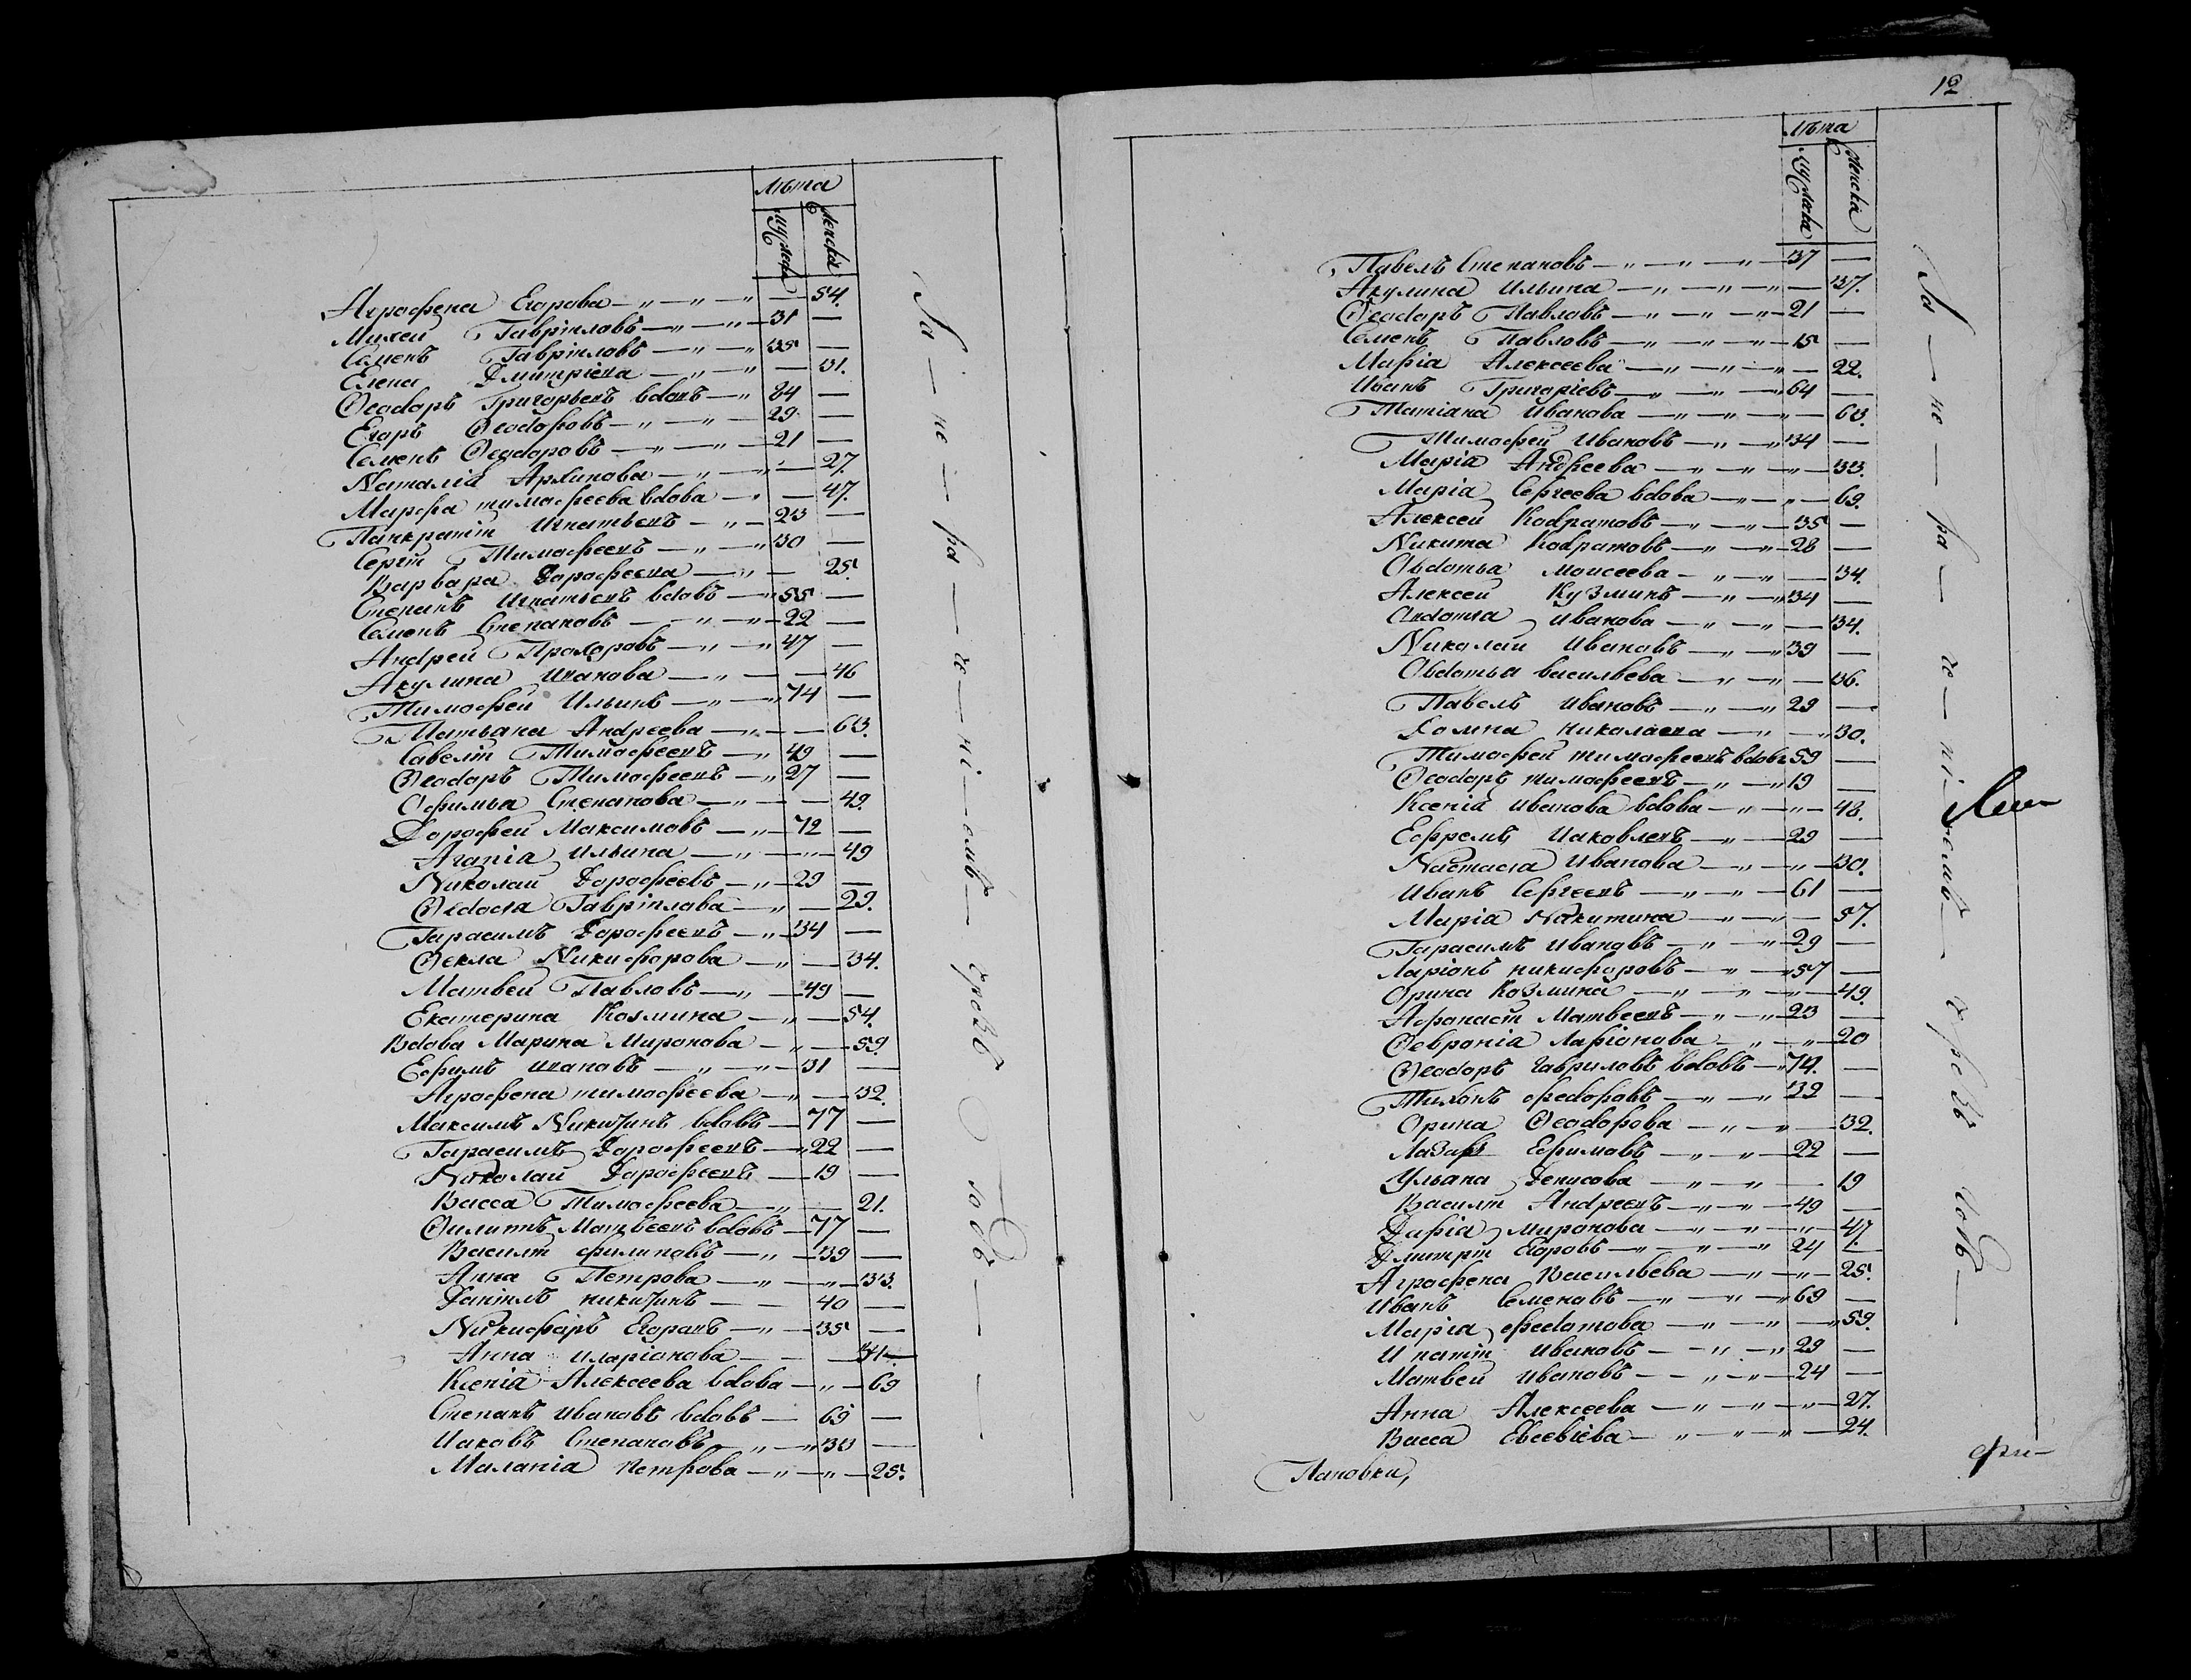 Лѣта
мужеска
женска
Агрофена Егорова — 54.
Михей Гавріиловъ — 31
Семенъ Гавріиловъ — 35
Елена Дмитріева — 31.
Ѳеодоръ Григорьевъ вдовъ — 84
Егоръ Ѳеодоровъ — 29
Семенъ Ѳеодоровъ — 21
Наталія Архипова — 27.
Марфа тимофеева вдова — 47.
Панкратій Игнатьевъ — 23
Сергій Тимофеевъ — 30
Варвара Дорофеева — 25.
Степанъ Игнатьевъ вдовъ — 55
Семенъ Степановъ — 22
Андрей Прохоровъ — 47
Акулина Иванова — 46
Тимофей Ильинъ — 74
Татьяна Андреева — 63.
Савелій Тимофеевъ — 49
Ѳеодоръ Тимофеевъ — 27
Офимья Степанова — 49.
Дорофей Максимовъ — 72
Агапія Ильина — 49
Николай Дорофеевъ — 29
Ѳедосія Гавріилова — 29.
Гарасимъ Дорофеевъ — 34
Ѳекла Никифорова — 34.
Матвей Павловъ — 49
Екатерина Козмина — 54.
Вдова Марина Миронова — 59.
Ефимъ Ивановъ — 31
Агрофена тимофеева — 32.
Максимъ Никитинъ вдовъ — 77
Гарасимъ Дорофеевъ — 22
Николай Дорофеевъ — 19
Васса Тимофеева — 21.
Филиппъ Матвеевъ вдовъ — 77
Василій филиповъ — 39
Анна Петрова — 33.
Даніилъ никитинъ — 40
Никифоръ Егоровъ — 35
Анна Иларіонова — 34
Ксенія Алексеева вдова — 69
Степанъ Ивановъ вдовъ — 69
Иаковъ Степановъ — 30
Маланія петрова — 25.
12
Лѣта
мужеска
женска
Павелъ Степановъ — 37
Акулина Ильина — 37.
Ѳеодоръ Павловъ — 21
Семенъ Павловъ — 15
Марія Алексеева — 22.
Иванъ Григоріевъ — 64
Татіана Иванова — 63.
Тимофей Ивановъ — 34
Марія Андреева — 33.
Марія Сергеева вдова — 69.
Алексей Кодратовъ — 35
Никита Кодратовъ — 28
Овдотья Моисеева — 34.
Алексей Кузминъ — 34
Авдотия Иванова — 34.
Николай Ивановъ — 39
Овдотья васильева — 36.
Павелъ Ивановъ — 29
Домна николаева — 30.
Тимофей тимофеевъ вдовъ 59
Ѳеодоръ тимофеевъ — 19
Ксенія Иванова вдова — 48.
Ефремъ Иаковлевъ — 29
Настасия Иванова — 30.
Иванъ Сергеевъ — 61
Марія Никитина — 57.
Гарасимъ Ивановъ — 29
Ларіонъ никифоровъ — 57
Орина Козмина — 49.
Афонасій Матвеевъ — 23
Ѳевронія Ларіонова — 20
Ѳеодоръ гавриловъ вдовъ — 74.
Тихонъ федоровъ — 32
Орина Ѳеодорова — 32.
Лазарь Ефимовъ — 22
Ульяна Денисова — 19
Василій Андреевъ — 49
Дарія миронова — 47.
Дмитрій Егоровъ — 24
Агрофена Васильева — 25.
Иванъ Семеновъ — 69
Марія федотова — 59.
Ипатій Ивановъ — 29
Матвей Ивановъ — 24
Анна Алексеева — 27.
Васса Евсевіева — 24.